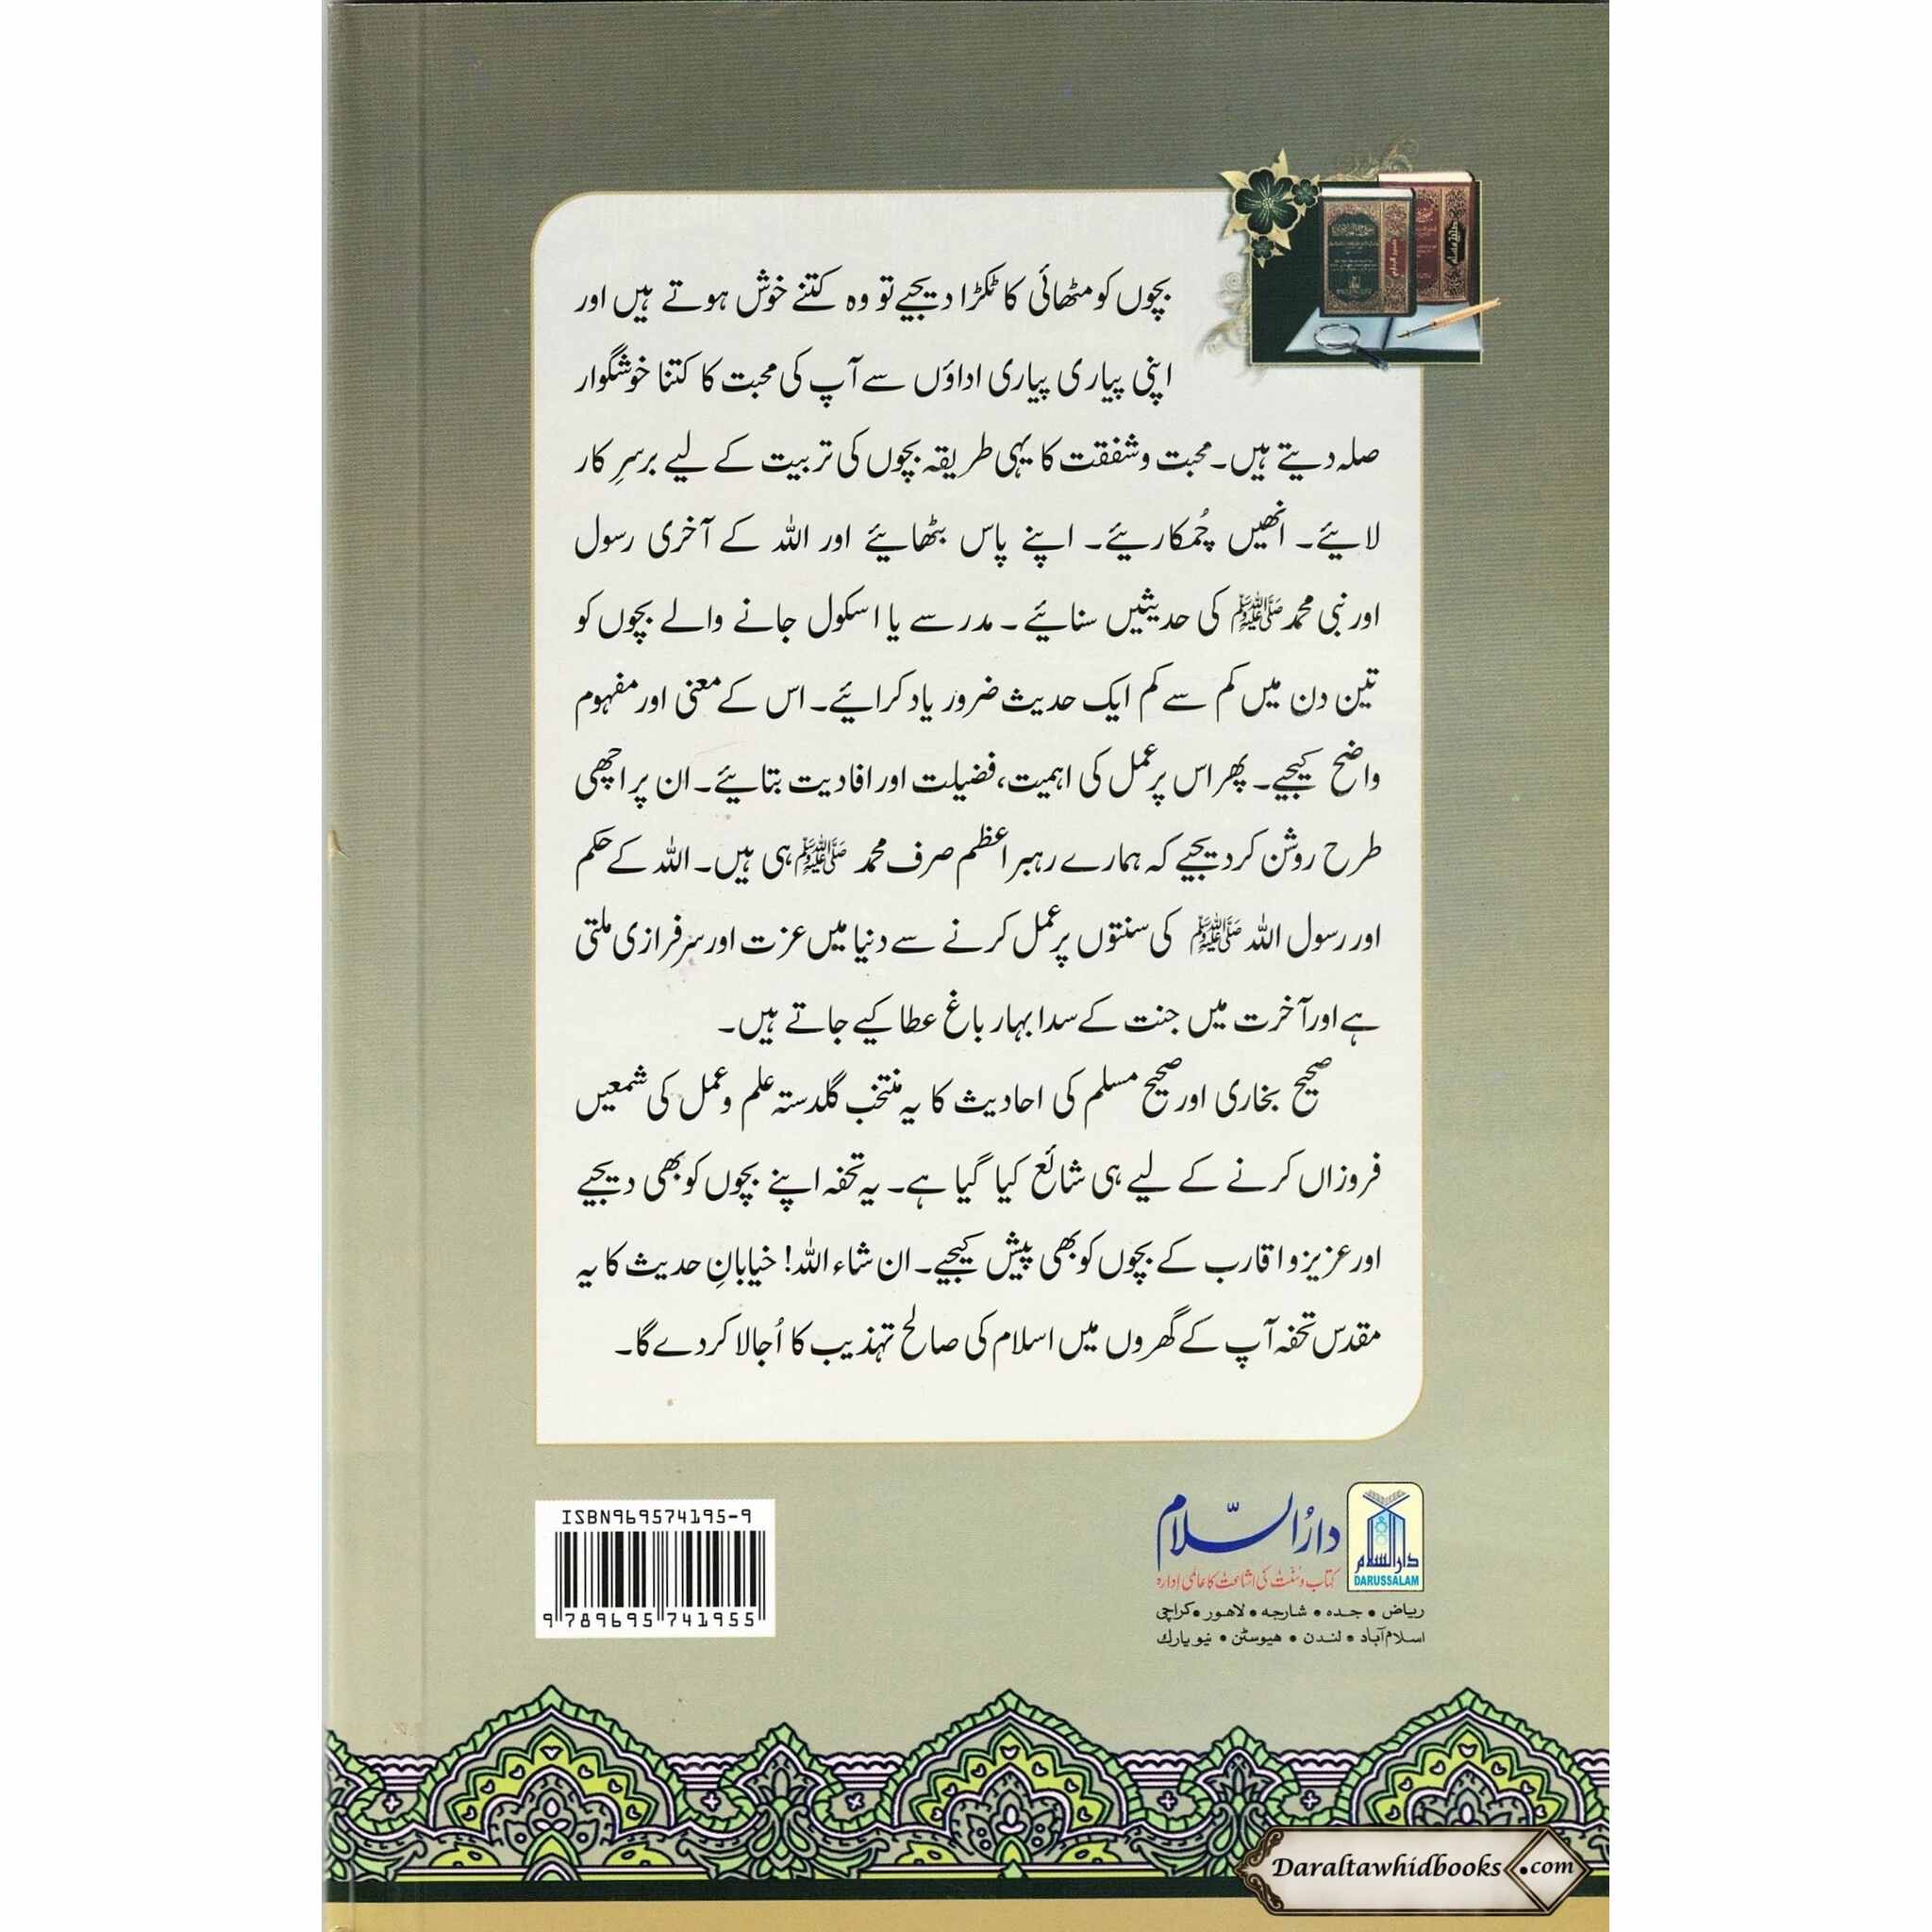 بچوں کو مٹھائی کا ٹکڑا دیجیے تو وہ کتنے خوش ہوتے ہیں اور
اپنی پیاری پیاری اداؤں سے آپ کی محبت کا کتنا خوشگوار
صلہ دیتے ہیں۔ محبت و شفقت کا یہی طریقہ بچوں کی تربیت کے لیے برسرِ کار
لائیے۔ انھیں چُمکاریئے۔ اپنے پاس بٹھایئے اور اللہ کے آخری رسول
اور نبی محمد ﷺ کی حدیثیں سنائیے۔ مدرسے یا اسکول جانے والے بچوں کو
تین دن میں کم سے کم ایک حدیث ضرور یاد کرائیے۔ اس کے معنی اور مفہوم
واضح کیجیے۔ پھر اس پر عمل کی اہمیت، فضیلت اور افادیت بتایئے۔ ان پر اچھی
طرح روشن کر دیجیے کہ ہمارے رہبر اعظم صرف محمد ﷺ ہی ہیں۔ اللہ کے حکم
اور رسول اللہ ﷺ کی سنتوں پر عمل کرنے سے دنیا میں عزت اور سرفرازی ملتی
ہے اور آخرت میں جنت کے سدا بہار باغ عطا کیے جاتے ہیں۔
صحیح بخاری اور صحیح مسلم کی احادیث کا یہ منتخب گلدستہ علم و عمل کی شمعیں
فروزاں کرنے کے لیے ہی شائع کیا گیا ہے۔ یہ تحفہ اپنے بچوں کو بھی دیجیے
اور عزیز و اقارب کے بچوں کو بھی پیش کیجیے۔ ان شاء اللہ! خیابانِ حدیث کا یہ
مقدس تحفہ آپ کے گھروں میں اسلام کی صالح تہذیب کا اُجالا کر دے گا۔
دارُالسّلام
کتاب و سُنت کی اشاعت کا عالمی ادارہ
ریاض • جدہ • شارجہ • لاہور • کراچی
اسلام آباد • لندن • ہیوسٹن • نیو یارک
دارالسلام
DARUSSALAM
ISBN969574195-9
9 789695 741955
Daraltawhidbooks.com